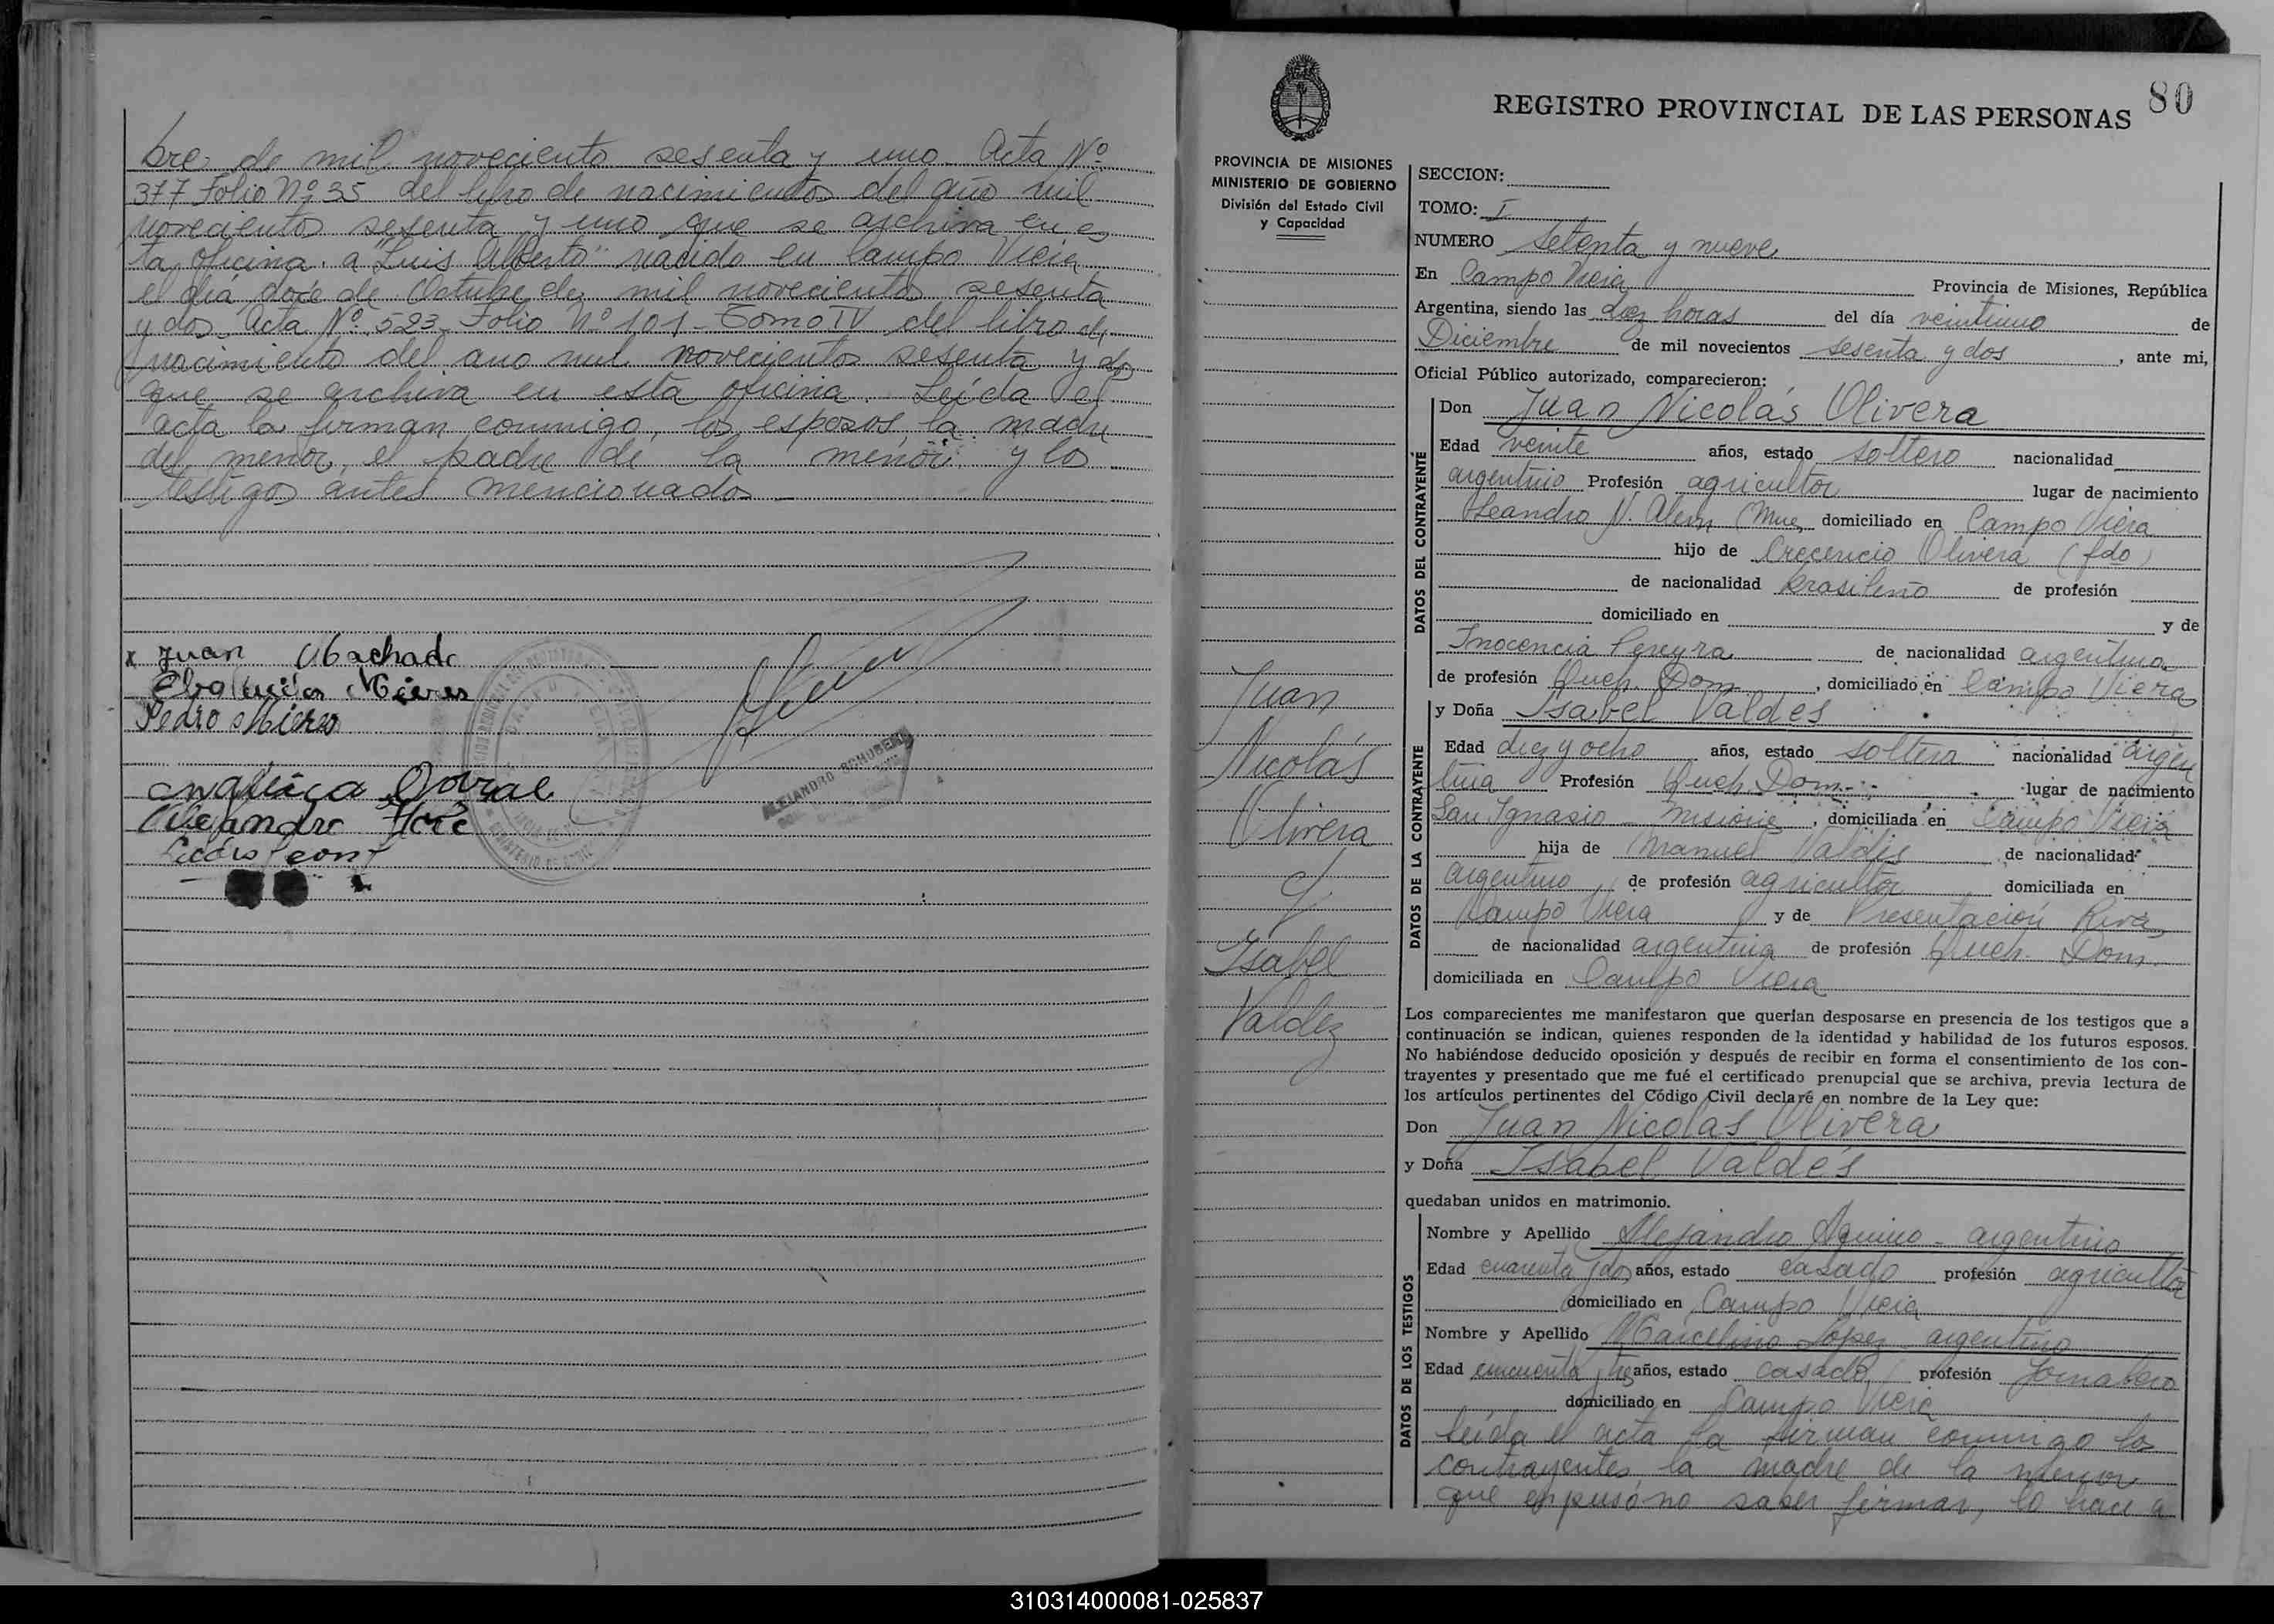 bre de mil noveciento sesenta y uno. Acta Nº
377 Folio Nº 35 del libro de nacimientos del año mil
noveciento sesenta y uno que se archiva en es
ta oficina. a "Luis Alberto" nacido en Campo Viera
el dia doce de Octubre de mil noveciento sesenta
y dos Acta Nº 523 Folio Nº 101 - Tomo IV del libro de
nacimiento del ano mil noveciento sesenta y dos
que se archiva en esta oficina. Leída el
acta la firman conmigo, los esposos, la madre
del menor, el padre de la menor y los
testigos antes mencionados
x Juan Machado
Elva Mieres
Pedro Mierez
ALEJANDRO SCHUBERT
80
REGISTRO PROVINCIAL DE LAS PERSONAS
PROVINCIA DE MISIONES
MINISTERIO DE GOBIERNO
División del Estado Civil
y Capacidad
SECCION:
TOMO: I
NUMERO Setenta y nueve
En Campo Viera Provincia de Misiones, República
Argentina, siendo las diez horas del día veintiuno de
Diciembre de mil novecientos sesenta y dos, ante mi,
Oficial Público autorizado, comparecieron:
DATOS DEL CONTRAYENTE
Don Juan Nicolás Olivera
Edad veinte años, estado soltero nacionalidad
argentino Profesión agricultor lugar de nacimiento
Leandro N. Alem Mnes domiciliado en Campo Viera
hijo de Crecencio Olivera (fdo)
de nacionalidad brasileño de profesión
domiciliado en y de
Inocencia Pereyra de nacionalidad argentina
de profesión Queh. Dom, domiciliado en Campo Viera
DATOS DE LA CONTRAYENTE
y Doña Isabel Valdés
Edad diez y ocho años, estado soltera nacionalidad argen
tina Profesión Queh. Dom. lugar de nacimiento
San Ignasio - Misiones, domiciliada en Campo Viera
hija de Manuel Valdés de nacionalidad
argentino de profesión agricultor domiciliada en
Campo Viera y de Presentación Riva
de nacionalidad argentina de profesión Queh. Dom.
domiciliada en Campo Viera
Juan
Nicolás
Olivera
y
Isabel
Valdez
Los comparecientes me manifestaron que querían desposarse en presencia de los testigos que a
continuación se indican, quienes responden de la identidad y habilidad de los futuros esposos.
No habiéndose deducido oposición y después de recibir en forma el consentimiento de los con-
trayentes y presentado que me fué el certificado prenupcial que se archiva, previa lectura de
los artículos pertinentes del Código Civil declaré en nombre de la Ley que:
Don Juan Nicolas Olivera
y Doña Isabel Valdés
quedaban unidos en matrimonio.
DATOS DE LOS TESTIGOS
Nombre y Apellido Alejandro Aquino - argentino
Edad cuarenta y dos años, estado casado profesión agricultor
domiciliado en Campo Viera
Nombre y Apellido Marcelino Lopez argentino
Edad cincuenta y tres años, estado casado profesión Jornalero
domiciliado en Campo Viera
Leída el acta la firman conmigo los
contrayentes, la madre de la menor
que expuso no saber firmar, lo hace a
310314000081-025837